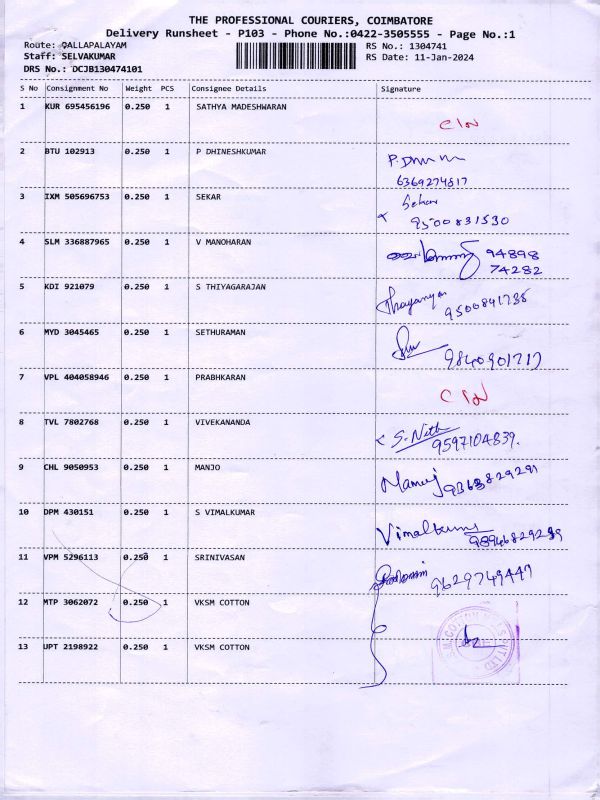 THE PROFESSIONAL COURIERS, COIMBATORE
Delivery Runsheet - P103 - Phone No.:0422-3505555 - Page No.:1
Route: QALLAPALAYAM RS No.: 1304741
Staff: SELVAKUMAR RS Date: 11-Jan-2024
DRS No.: DCJB130474101
S No Consignment No Weight PCS Consignee Details Signature
1 KUR 695456196 0.250 1 SATHYA MADESHWARAN
2 BTU 102913 0.250 1 P DHINESHKUMAR
6369274817
3 IXM 505696753 0.250 1 SEKAR Sekar
9500831530
4 SLM 336887965 0.250 1 V MANOHARAN 94898
74282
5 KDI 921079 0.250 1 S THIYAGARAJAN
9500841735
6 MYD 3045465 0.250 1 SETHURAMAN
9840901717
7 VPL 404058946 0.250 1 PRABHKARAN
8 TVL 7802768 0.250 1 VIVEKANANDA S. Nith
9597104839.
9 CHL 9050953 0.250 1 MANJO
10 DPM 430151 0.250 1 S VIMALKUMAR Vimalkumar
11 VPM 5296113 0.250 1 SRINIVASAN
9629749447
12 MTP 3062072 0.250 1 VKSM COTTON
13 UPT 2198922 0.250 1 VKSM COTTON